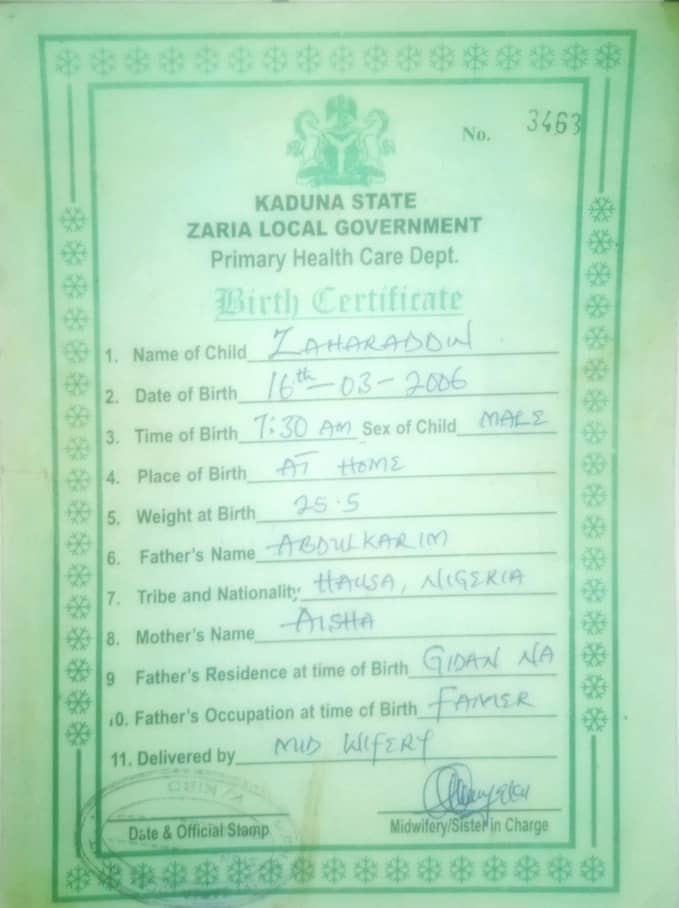 No. 3463
KADUNA STATE
ZARIA LOCAL GOVERNMENT
Primary Health Care Dept.
Birth Certificate
1. Name of Child ZAHARADDIN
2. Date of Birth 16th-03-2006
3. Time of Birth 7:30 AM Sex of Child MALE
4. Place of Birth AT HOME
5. Weight at Birth 25.5
6. Father's Name ABDULKARIM
7. Tribe and Nationality HAUSA, NIGERIA
8. Mother's Name AISHA
9 Father's Residence at time of Birth GIDAN NA
10. Father's Occupation at time of Birth FAMER
11. Delivered by MID WIFERY
Date & Official Stamp
Midwifery/Sister in Charge